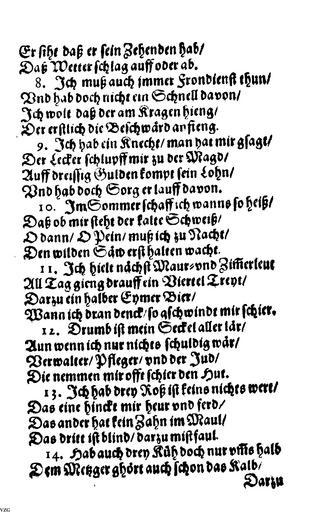 Er siht daß er sein Zehenden hab/
Daß Wetter schlag auff oder ab.
8. Ich muß auch immer Frondienst thun/
Vnd hab doch nicht ein Schnell davon/
Ich wolt daß der am Kragen hieng/
Der erstlich die Beschwärd anfieng.
9. Ich hab ein Knecht/ man hat mir gsagt/
Der Lecker schlupff mir zu der Magd/
Auff dreissig Gulden kompt sein Lohn/
Vnd hab doch Sorg er lauff davon.
10. Im Sommer schaff ich wanns so heiß/
Daß ob mir steht der kalte Schweiß/
O dann/ O Pein/ muß ich zu Nacht/
Den wilden Säw erst halten wacht.
11. Ich hielt nächst Maur- vnd Zim̃erleut
All Tag gieng drauff ein Viertel Treyt/
Darzu ein halber Eymer Bier/
Wann ich dran denck/ so gschwindt mir schier.
12. Drumb ist mein Seckel aller lär/
Aun wenn ich nur nichts schuldig wär/
Verwalter/ Pfleger/ vnd der Jud/
Die nemmen mir offt schier den Hut.
13. Ich hab drey Roß ist keins nichts wert/
Das eine hinckt mir heur vnd ferd/
Das ander hat kein Zahn im Maul/
Das dritt ist blind/ darzu mistfaul.
14. Hab auch drey Küh doch nur vm̃s halb
Dem Metzger ghört auch schon das Kalb/
Darzu
VZG